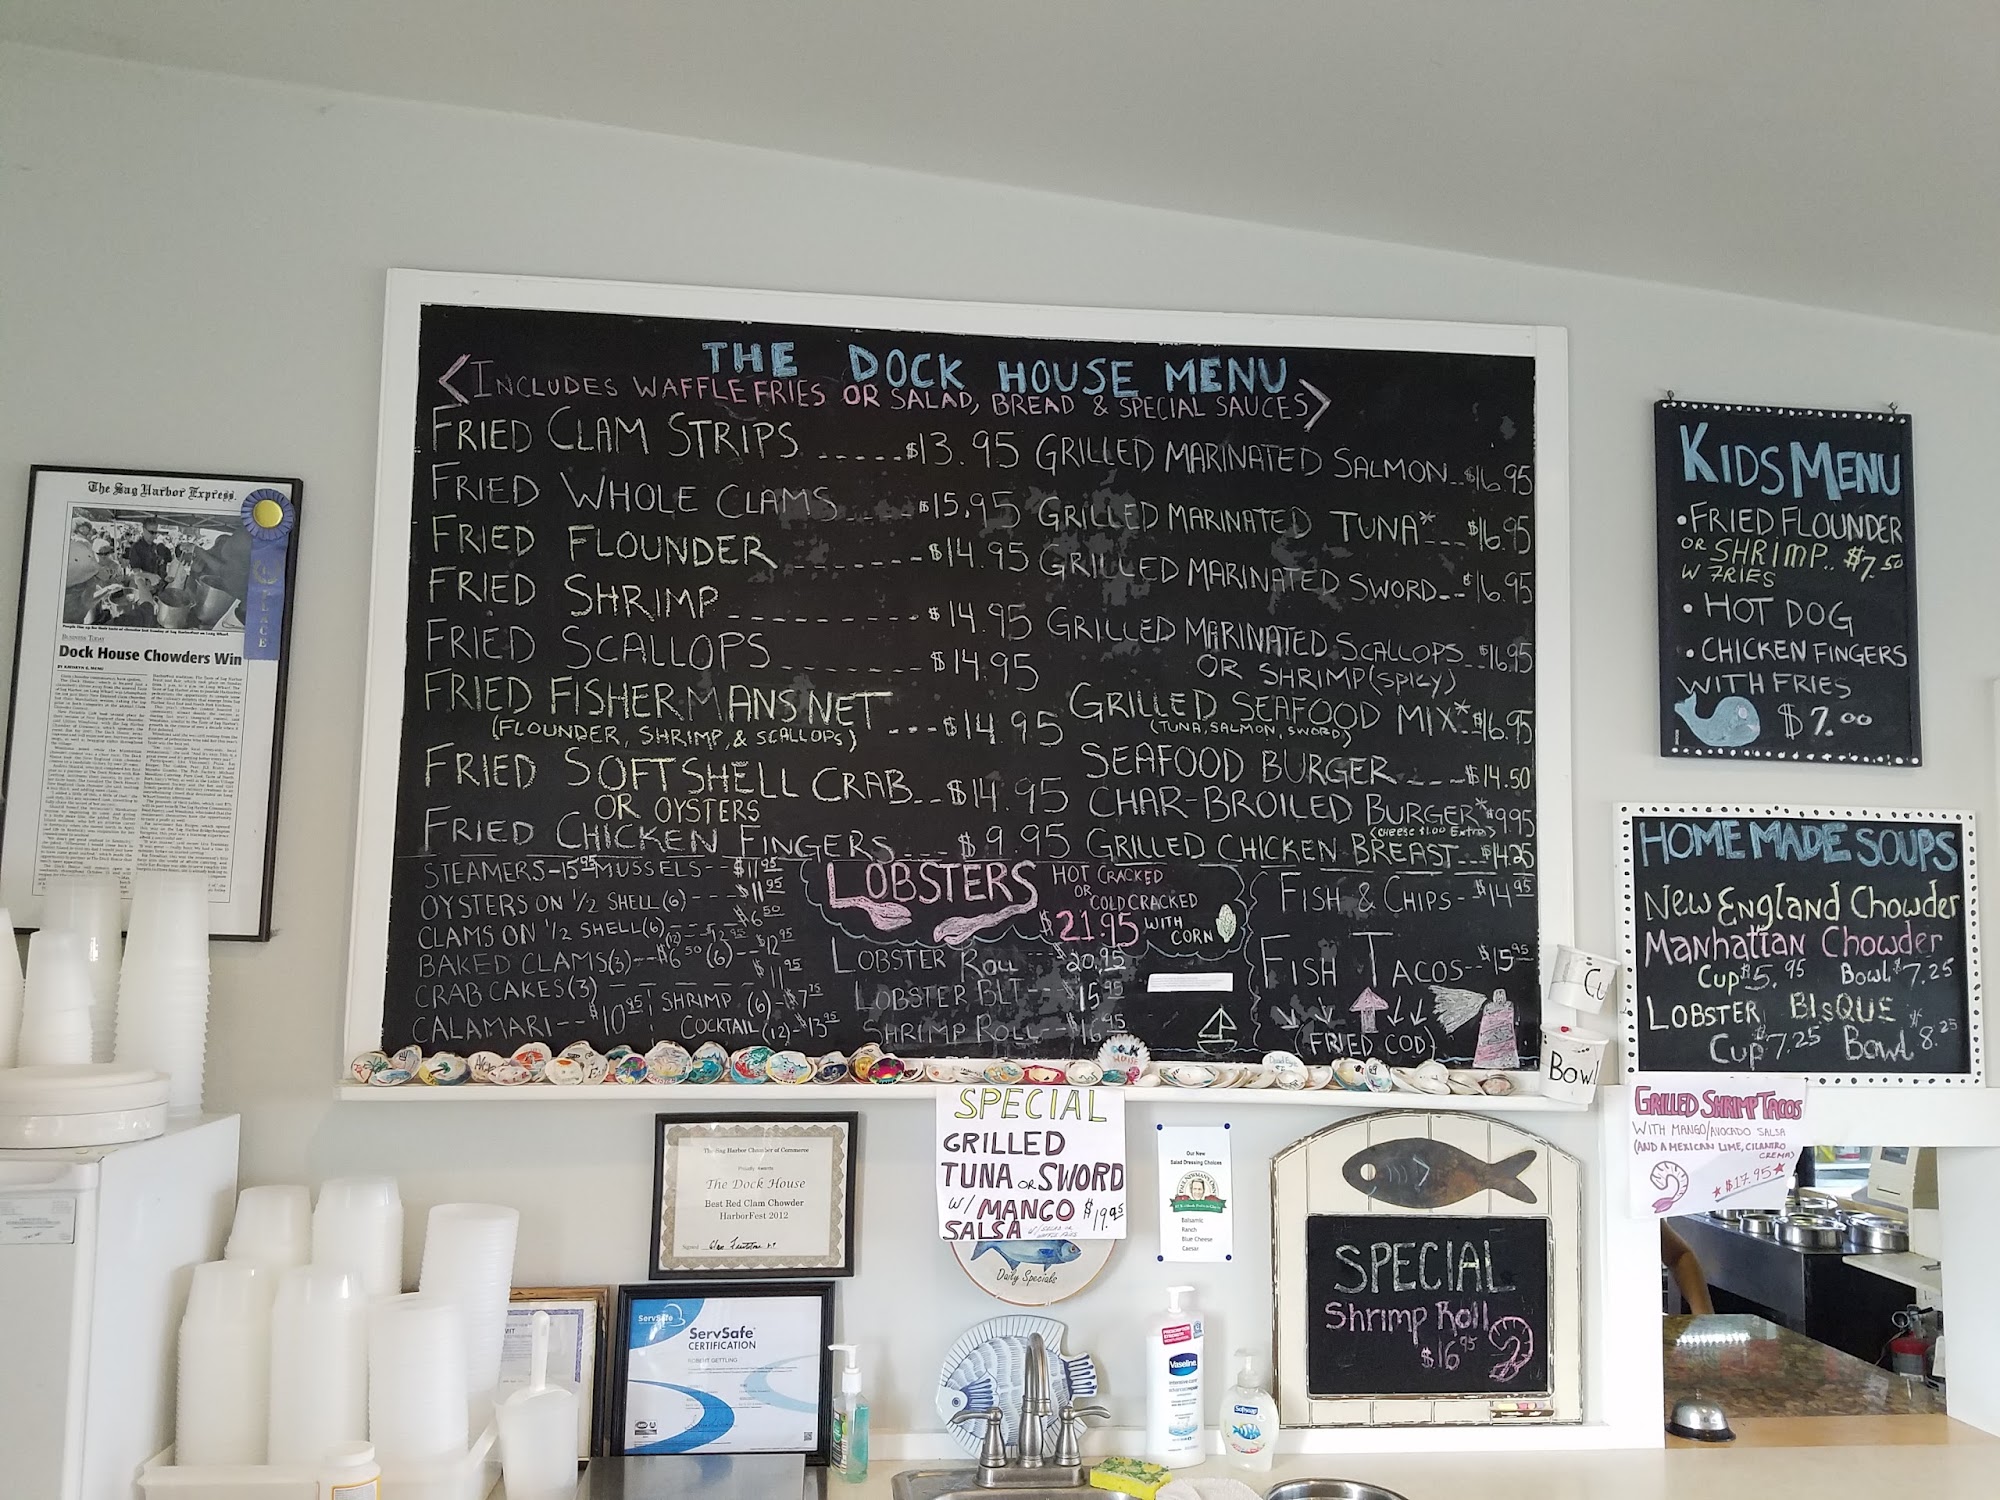 THE DOCK HOUSE MENU
<INCLUDES WAFFLE FRIES OR SALAD, BREAD & SPECIAL SAUCES>
FRIED CLAM STRIPS -----$13.95
FRIED WHOLE CLAMS----$15.95
FRIED FLOUNDER -------$14.95
FRIED SHRIMP----------$14.95
FRIED SCALLOPS-------$14.95
FRIED FISHERMANS NET ---$14.95
(FLOUNDER, SHRIMP, & SCALLOPS)
FRIED SOFTSHELL CRAB--$14.95
OR OYSTERS
FRIED CHICKEN FINGERS-- $9.95
GRILLED MARINATED SALMON--$16.95
GRILLED MARINATED TUNA*---$16.95
GRILLED MARINATED SWORD--$16.95
GRILLED MARINATED SCALLOPS--$16.95
OR SHRIMP(SPICY)
GRILLED SEAFOOD MIX*-$16.95
(TUNA, SALMON, SWORD)
SEAFOOD BURGER----$14.50
CHAR-BROILED BURGER*$9.95
(CHEESE $1.00 EXTRA)
GRILLED CHICKEN BREAST--$14.25
STEAMERS-15.95 MUSSELS--$11.95
OYSTERS ON 1/2 SHELL(6)---$11.95
CLAMS ON 1/2 SHELL(6)--$6.50
(12)--$12.95
BAKED CLAMS(3)--$6.50 (6)--$12.95
CRAB CAKES(3) -- $11.95
CALAMARI--$10.95
SHRIMP (6)-$7.75
COCKTAIL(12)-$13.95
LOBSTERS
HOT CRACKED
OR
COLD CRACKED
$21.95 WITH
CORN
LOBSTER ROLL $20.95
LOBSTER BLT--$15.95
SHRIMP ROLL--$16.95
FISH & CHIPS--$14.95
FISH TACOS--$15.95
(FRIED COD)
KIDS MENU
•FRIED FLOUNDER
OR SHRIMP..$7.50
W FRIES
• HOT DOG
• CHICKEN FINGERS
WITH FRIES
$7.00
HOMEMADE SOUPS
NEW ENGLAND CHOWDER
MANHATTAN CHOWDER
CUP $5.95 BOWL $7.25
LOBSTER BISQUE
CUP $7.25 BOWL $8.25
CU
BOWL
GRILLED SHRIMP TACOS
WITH MANGO/AVOCADO SALSA
(AND A MEXICAN LIME, CILANTRO
CREMA)
$17.95
SPECIAL
GRILLED
TUNA OR SWORD
W/ MANGO $19.95
SALSA
Daily Specials
SPECIAL
Shrimp Roll
$16.95
Our New
Salad Dressing Choices
Balsamic
Ranch
Blue Cheese
Caesar
The Sag Harbor Chamber of Commerce
Proudly Awards
The Dock House
Best Red Clam Chowder
HarborFest 2012
Signed
ServSafe
ServSafe
CERTIFICATION
ROBERT GETTLING
Vaseline
Softsoap
The Sag Harbor Express.
BUSINESS TODAY
Dock House Chowders Win
PLACE